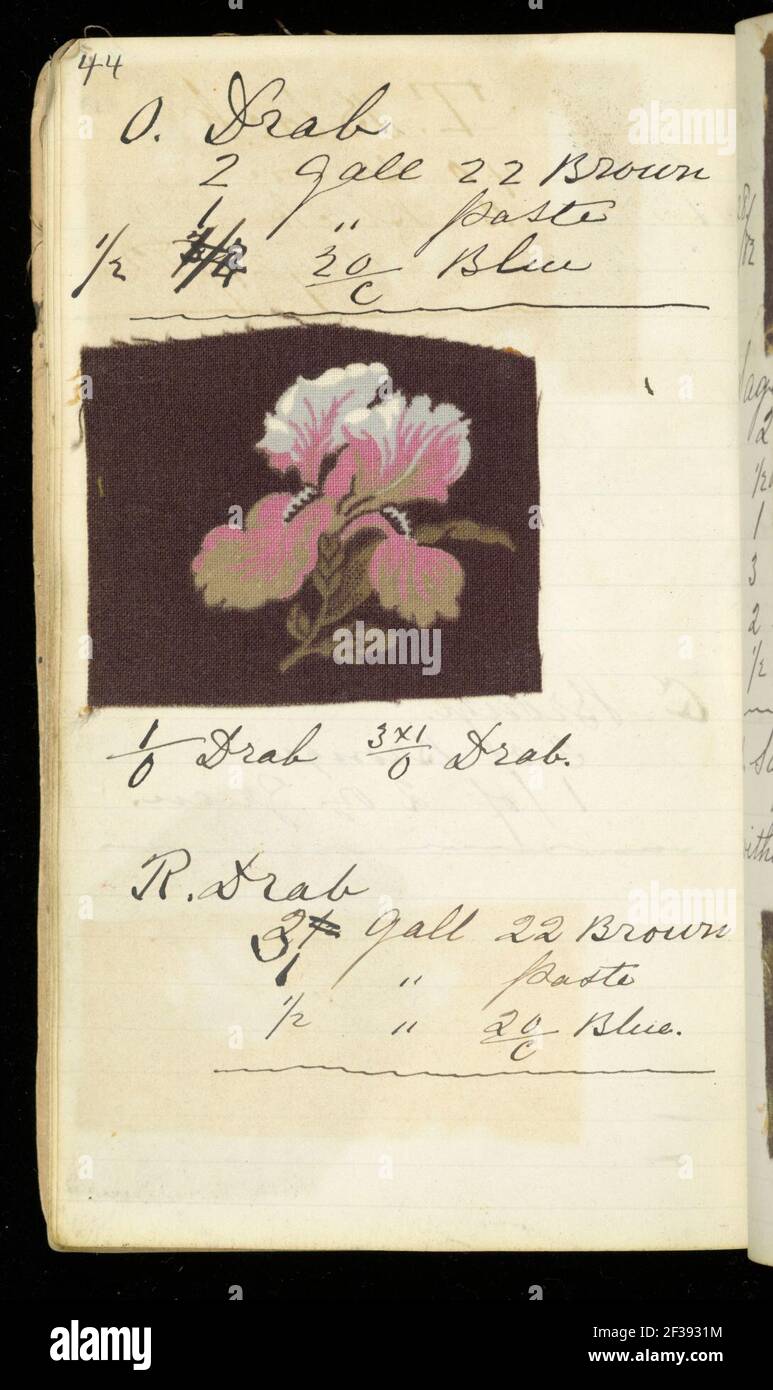 44
O. Drab
2 Gall 22 Brown
1 " paste
1/2 20/C Blue
1/0 Drab 3x1/0 Drab.
R. Drab
2 Gall 22 Brown
1 " paste
1/2 " 20/C Blue.
alamy
alamy
Image ID: 2F3931M
www.alamy.com